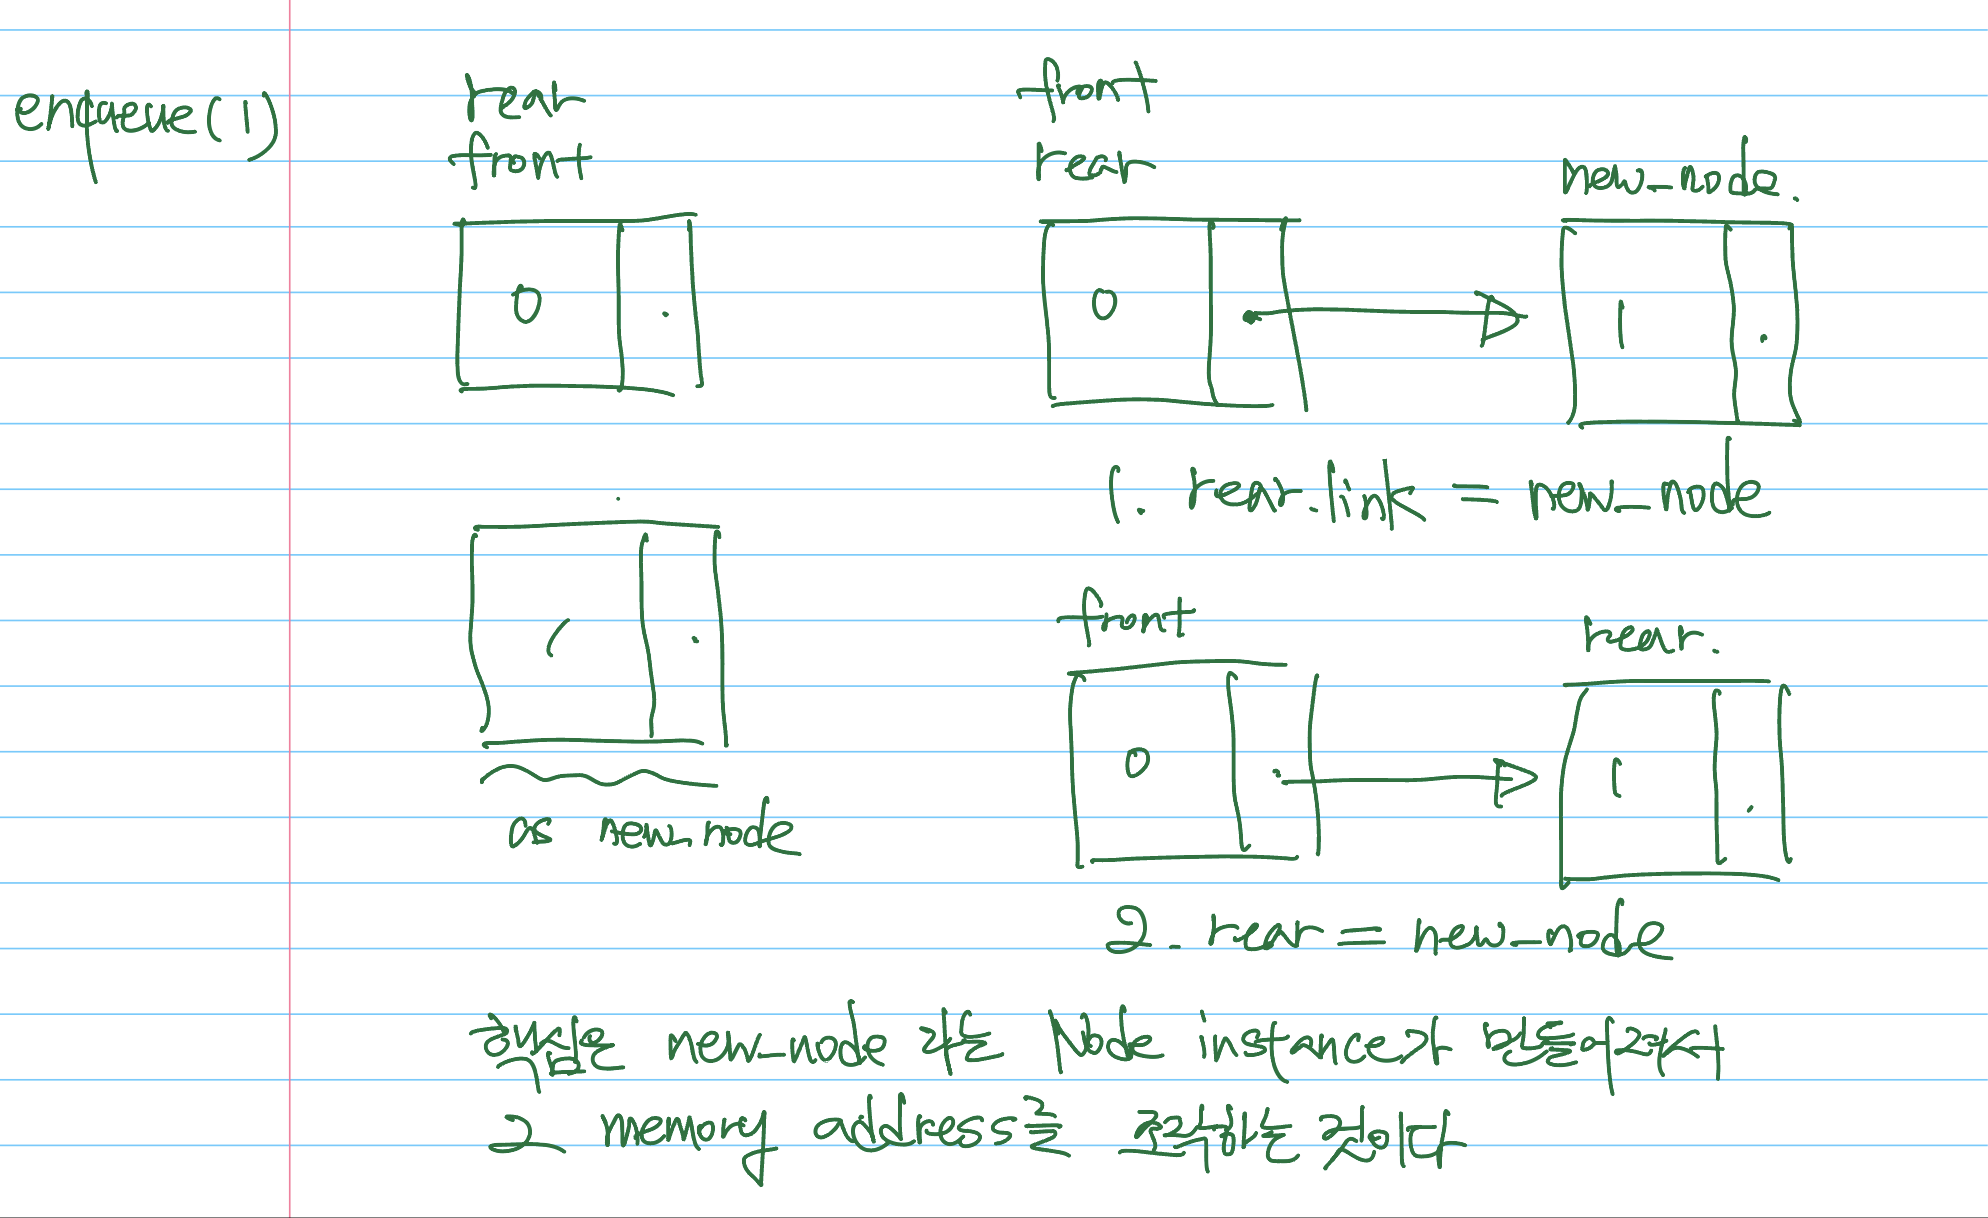 enqueue(1)
rear
front
0
1
as new_node
front
rear
new_node.
0
1
1. rear.link = new_node
front
rear.
0
1
2. rear = new_node
핵심은 new_node 라는 Node instance가 만들어져서
그 memory address를 조작하는 것이다